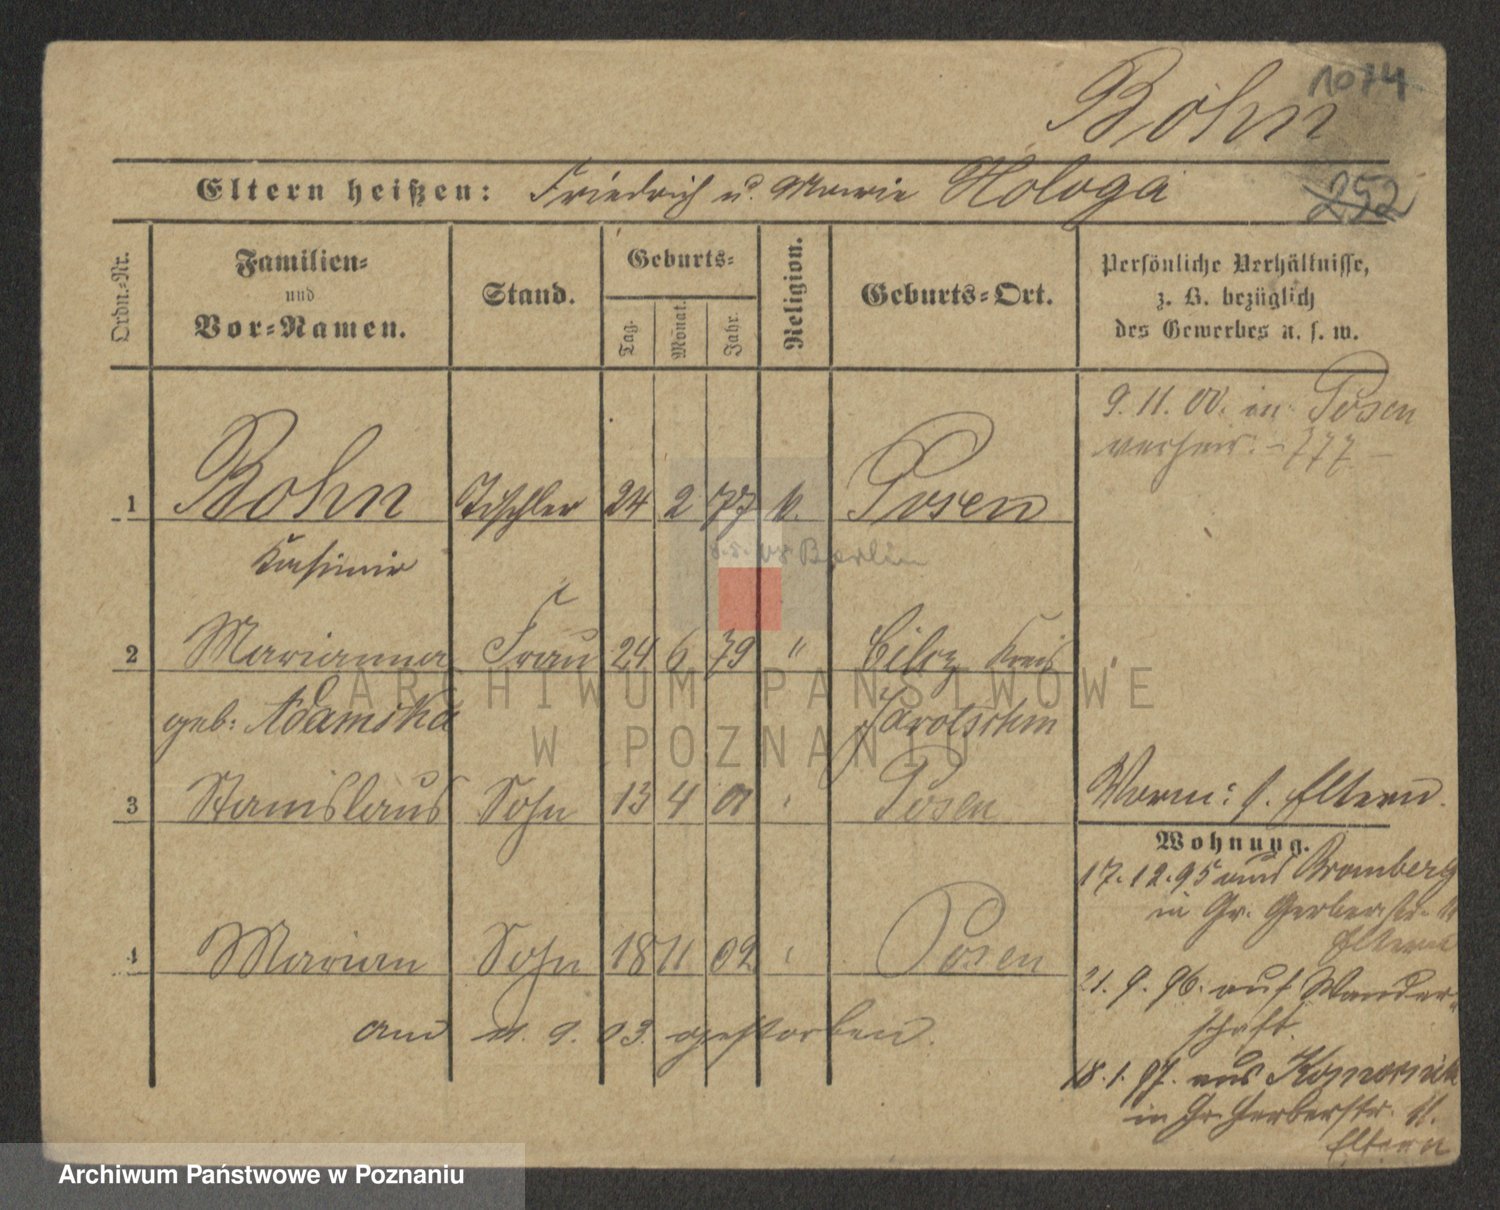 1074
Bohn
Eltern heißen: Friedrich u. Marie Hologa
252
Ordn.-Nr.
Familien-
und
Vor-Namen.
Stand.
Geburts-
Tag.
Monat.
Jahr.
Religion.
Geburts-Ort.
Persönliche Verhältnisse,
z. B. bezüglich
des Gewerbes u. s. w.
9. 11. 00. in Posen
verheir. - 777 -
1 Bohn Tischler 24 2 77 k. Posen
Kasimir
Berlin
2 Marianna Frau 24 6 79 " Cilcz Kreis
geb: Adamska Jarotschin
3 Stanislaus Sohn 13 4 01 Posen
Vorm: s. Eltern.
Wohnung.
17. 12. 95 aus Bromberg
in Gr. Gerberstr. 11
Eltern
4 Marian Sohn 18 11 02 Posen
am 11. 9. 03 gestorben.
21. 9. 96. auf Wander-
schaft.
18. 1. 97. aus Komornik
in Gr. Gerberstr. 11.
Eltern
ARCHIWUM PAŃSTWOWE
W POZNANIU
Archiwum Państwowe w Poznaniu